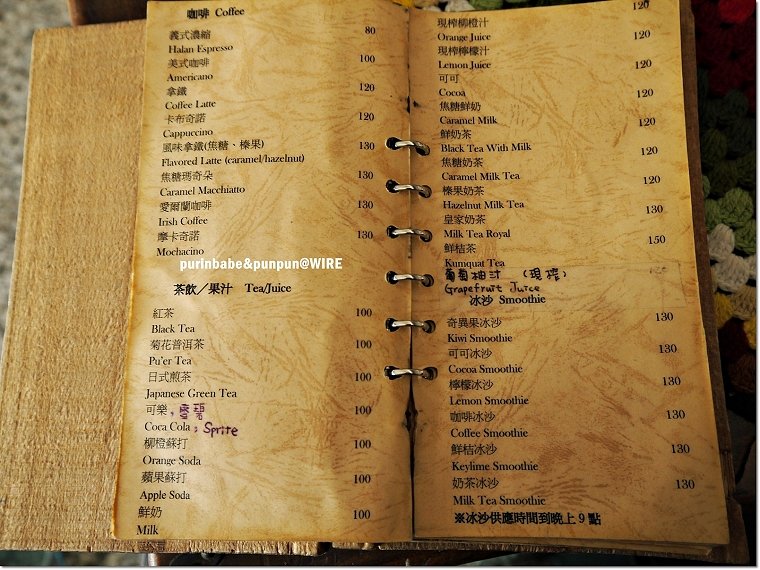 咖啡 Coffee
義式濃縮 80
Halan Espresso
美式咖啡 100
Americano
拿鐵 120
Coffee Latte
卡布奇諾 120
Cappuccino
風味拿鐵(焦糖、榛果) 130
Flavored Latte (caramel/hazelnut)
焦糖瑪奇朵 130
Caramel Macchiatto
愛爾蘭咖啡 130
Irish Coffee
摩卡奇諾 130
Mochacino
purinbabe&punpun@WIRE
茶飲／果汁 Tea/Juice
紅茶 100
Black Tea
菊花普洱茶 100
Pu'er Tea
日式煎茶 100
Japanese Green Tea
可樂，雪碧 100
Coca Cola , Sprite
柳橙蘇打 100
Orange Soda
蘋果蘇打 100
Apple Soda
鮮奶 100
Milk
120
現榨柳橙汁
Orange Juice 120
現榨檸檬汁
Lemon Juice 120
可可
Cocoa 120
焦糖鮮奶
Caramel Milk 120
鮮奶茶
Black Tea With Milk 120
焦糖奶茶
Caramel Milk Tea 120
榛果奶茶
Hazelnut Milk Tea 130
皇家奶茶
Milk Tea Royal 150
鮮桔茶
Kumquat Tea
葡萄柚汁 (現榨)
Grapefruit Juice
冰沙 Smoothie
奇異果冰沙 130
Kiwi Smoothie
可可冰沙 130
Cocoa Smoothie
檸檬冰沙 130
Lemon Smoothie
咖啡冰沙 130
Coffee Smoothie
鮮桔冰沙 130
Keylime Smoothie
奶茶冰沙 130
Milk Tea Smoothie
※冰沙供應時間到晚上9點